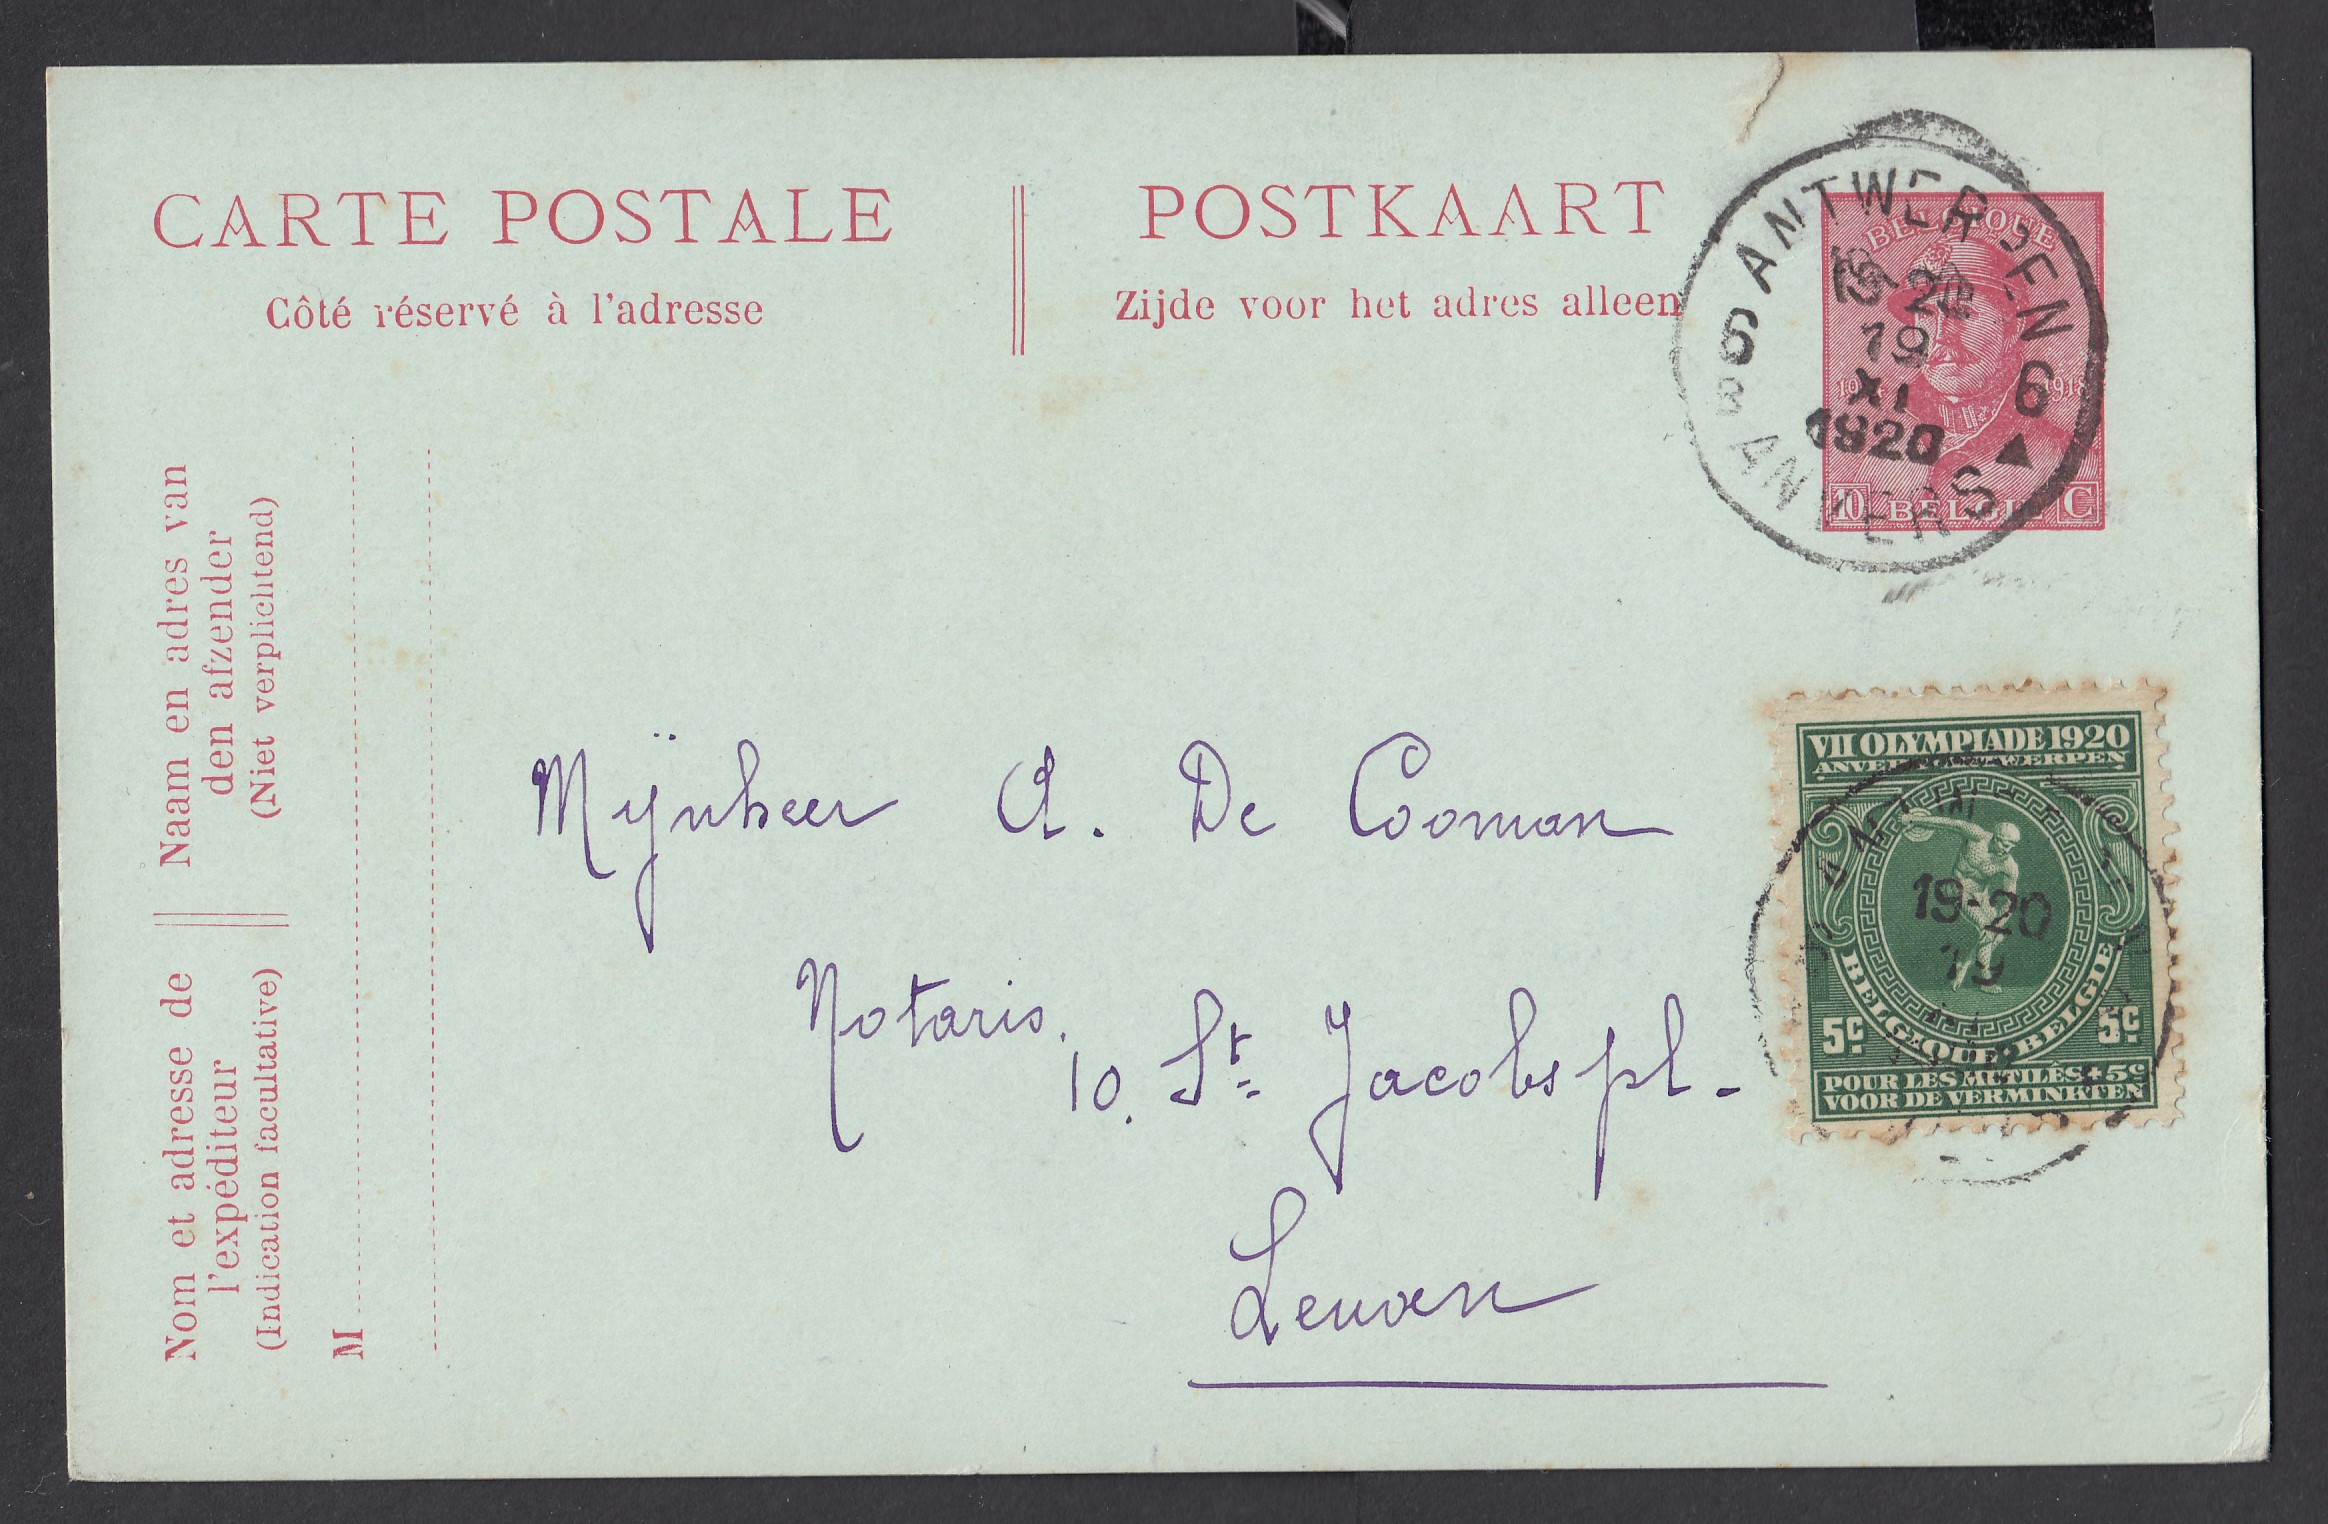 CARTE POSTALE
Côté réservé à l'adresse
POSTKAART
Zijde voor het adres alleen
BELGIQUE
1918
10 BELGIË C
6 ANTWERPEN 6
19-20
19
XI
1920
ANVERS
Naam en adres van
den afzender
(Niet verplichtend)
Nom et adresse de
l'expéditeur
(Indication facultative)
M
Mijnheer A. De Cooman
Notaris.
10. St. Jacobspl-
Leuven
VII OLYMPIADE 1920
19-20
19
BELGIQUE BELGIE
5c 5c
POUR LES MUTILÉS+5c
VOOR DE VERMINKTEN